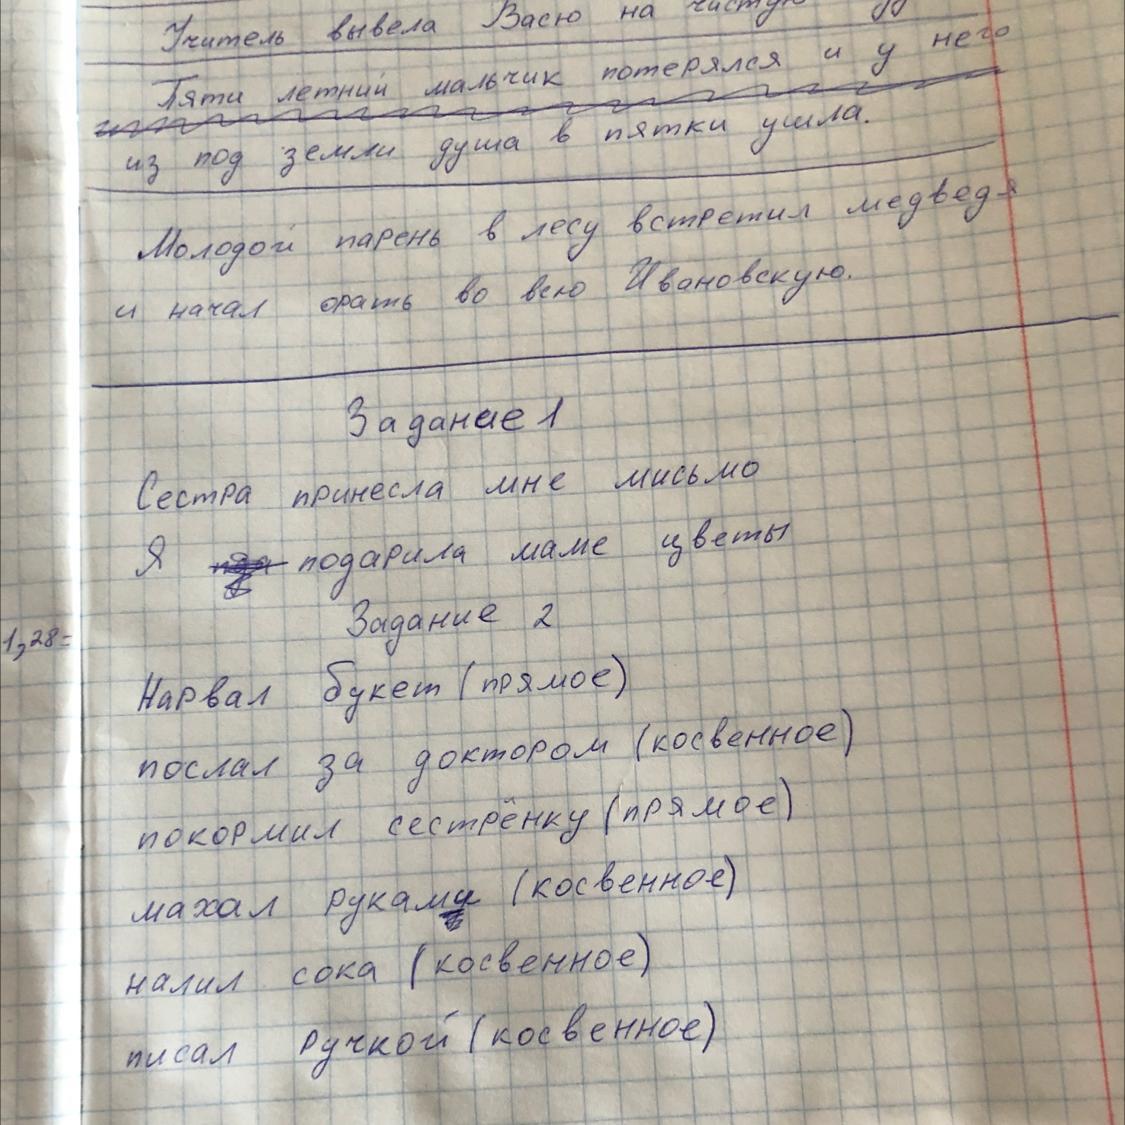 Учитель вывела Васю на чистую
Пяти летний мальчик потерялся и у него
из под земли душа в пятки ушла.
Молодой парень в лесу встретил медведя
и начал орать во всю Ивановскую.
Задание 1
Сестра принесла мне мисьмо
Я подарила маме цветы
Задание 2
1,28=
Нарвал букет (прямое)
послал за доктором (косвенное)
покормил сестрёнку (прямое)
махал руками (косвенное)
налил сока (косвенное)
писал ручкой (косвенное)